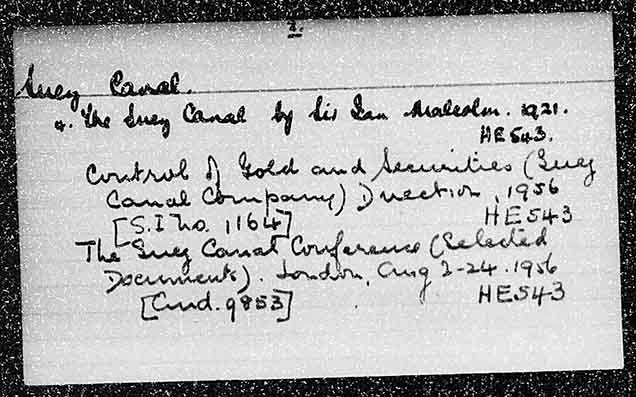 2.
Suez Canal.
4. The Suez Canal by Sir Ian Malcolm. 1921.
HE543.
Control of Gold and Securities (Suez
Canal Company) Direction, 1956
[S.I No. 1164] HE543
The Suez Canal Conference (Selected
Documents). London, Aug 2-24. 1956
[Cmd. 9853] HE543